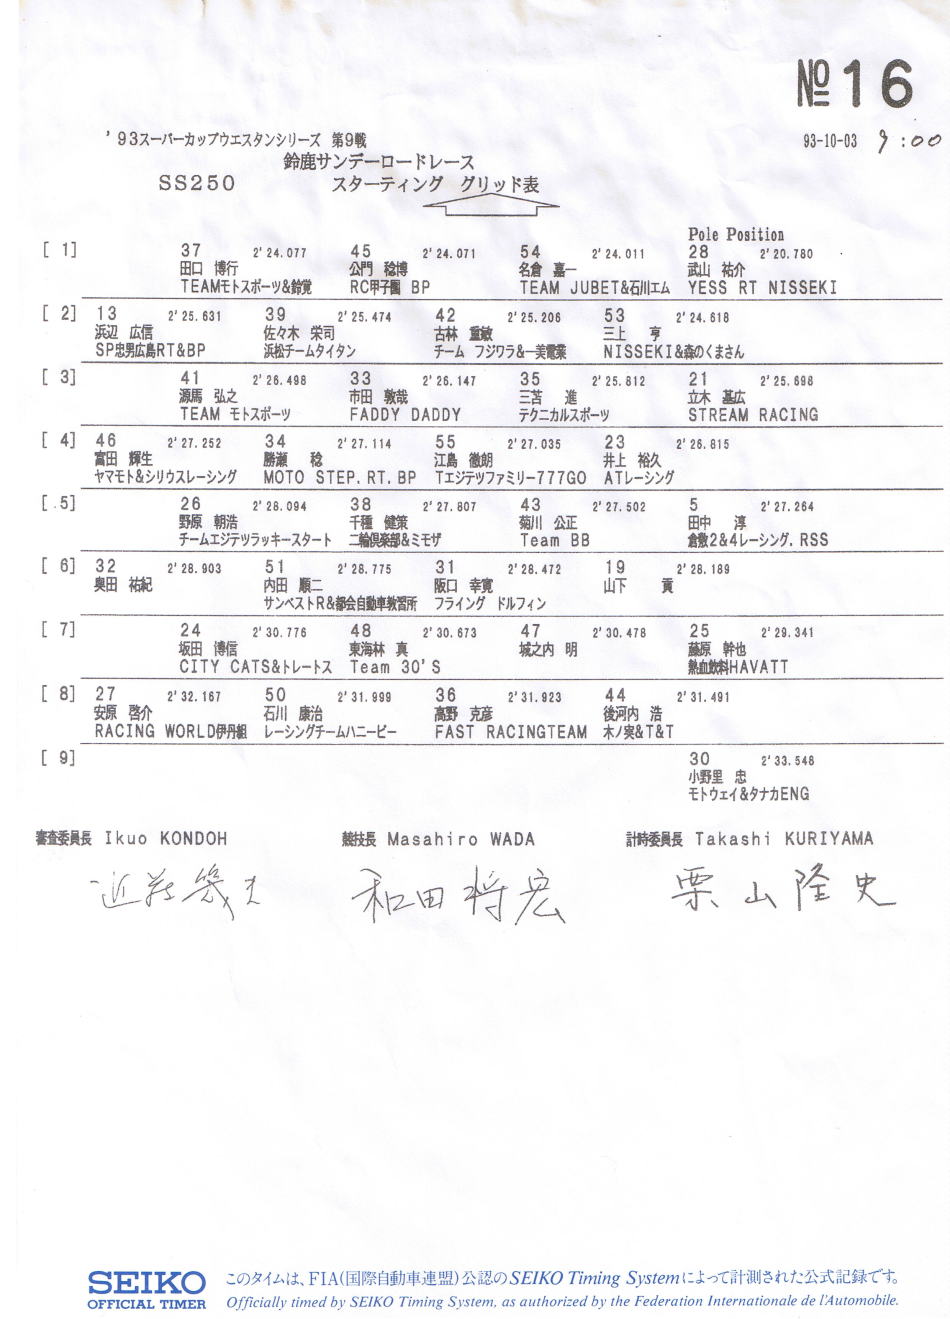 №16
'93スーパーカップウエスタンシリーズ 第9戦
93-10-03 9:00
鈴鹿サンデーロードレース
SS250 スターティング グリッド表
Pole Position
[ 1] 37 2'24.077 45 2'24.071 54 2'24.011 28 2'20.780
田口 博行 公門 稔博 名倉 嘉一 武山 祐介
TEAMモトスポーツ&鈴覚 RC甲子園 BP TEAM JUBET&石川エム YESS RT NISSEKI
[ 2] 13 2'25.631 39 2'25.474 42 2'25.206 53 2'24.618
浜辺 広信 佐々木 栄司 古林 重敏 三上 亨
SP忠男広島RT&BP 浜松チームタイタン チーム フジワラ&一美電業 NISSEKI&森のくまさん
[ 3] 41 2'26.498 33 2'26.147 35 2'25.812 21 2'25.698
源馬 弘之 市田 敦哉 三苫 進 立木 基広
TEAM モトスポーツ FADDY DADDY テクニカルスポーツ STREAM RACING
[ 4] 46 2'27.252 34 2'27.114 55 2'27.035 23 2'26.815
富田 輝生 勝瀬 稔 江島 徹朗 井上 裕久
ヤマモト&シリウスレーシング MOTO STEP.RT.BP Tエジテツファミリー777GO ATレーシング
[ 5] 26 2'28.094 38 2'27.807 43 2'27.502 5 2'27.264
野原 朝浩 千種 健策 菊川 公正 田中 淳
チームエジテツラッキースタート 二輪倶楽部&ミモザ Team BB 倉敷2&4レーシング.RSS
[ 6] 32 2'28.903 51 2'28.775 31 2'28.472 19 2'28.189
奥田 祐紀 内田 順二 阪口 幸寛 山下 貢
サンベストR&都会自動車教習所 フライング ドルフィン
[ 7] 24 2'30.776 48 2'30.673 47 2'30.478 25 2'29.341
坂田 博信 東海林 真 城之内 明 藤原 幹也
CITY CATS&トレートス Team 30'S 熱血飲料HAVATT
[ 8] 27 2'32.167 50 2'31.999 36 2'31.923 44 2'31.491
安原 啓介 石川 康治 高野 克彦 後河内 浩
RACING WORLD伊丹組 レーシングチームハニービー FAST RACINGTEAM 木ノ実&T&T
[ 9] 30 2'33.548
小野里 忠
モトウェイ&タナカENG
審査委員長 Ikuo KONDOH 競技長 Masahiro WADA 計時委員長 Takashi KURIYAMA
近藤幾夫 和田将宏 栗山隆史
SEIKO このタイムは、FIA(国際自動車連盟)公認のSEIKO Timing Systemによって計測された公式記録です。
OFFICIAL TIMER Officially timed by SEIKO Timing System, as authorized by the Federation Internationale de l'Automobile.